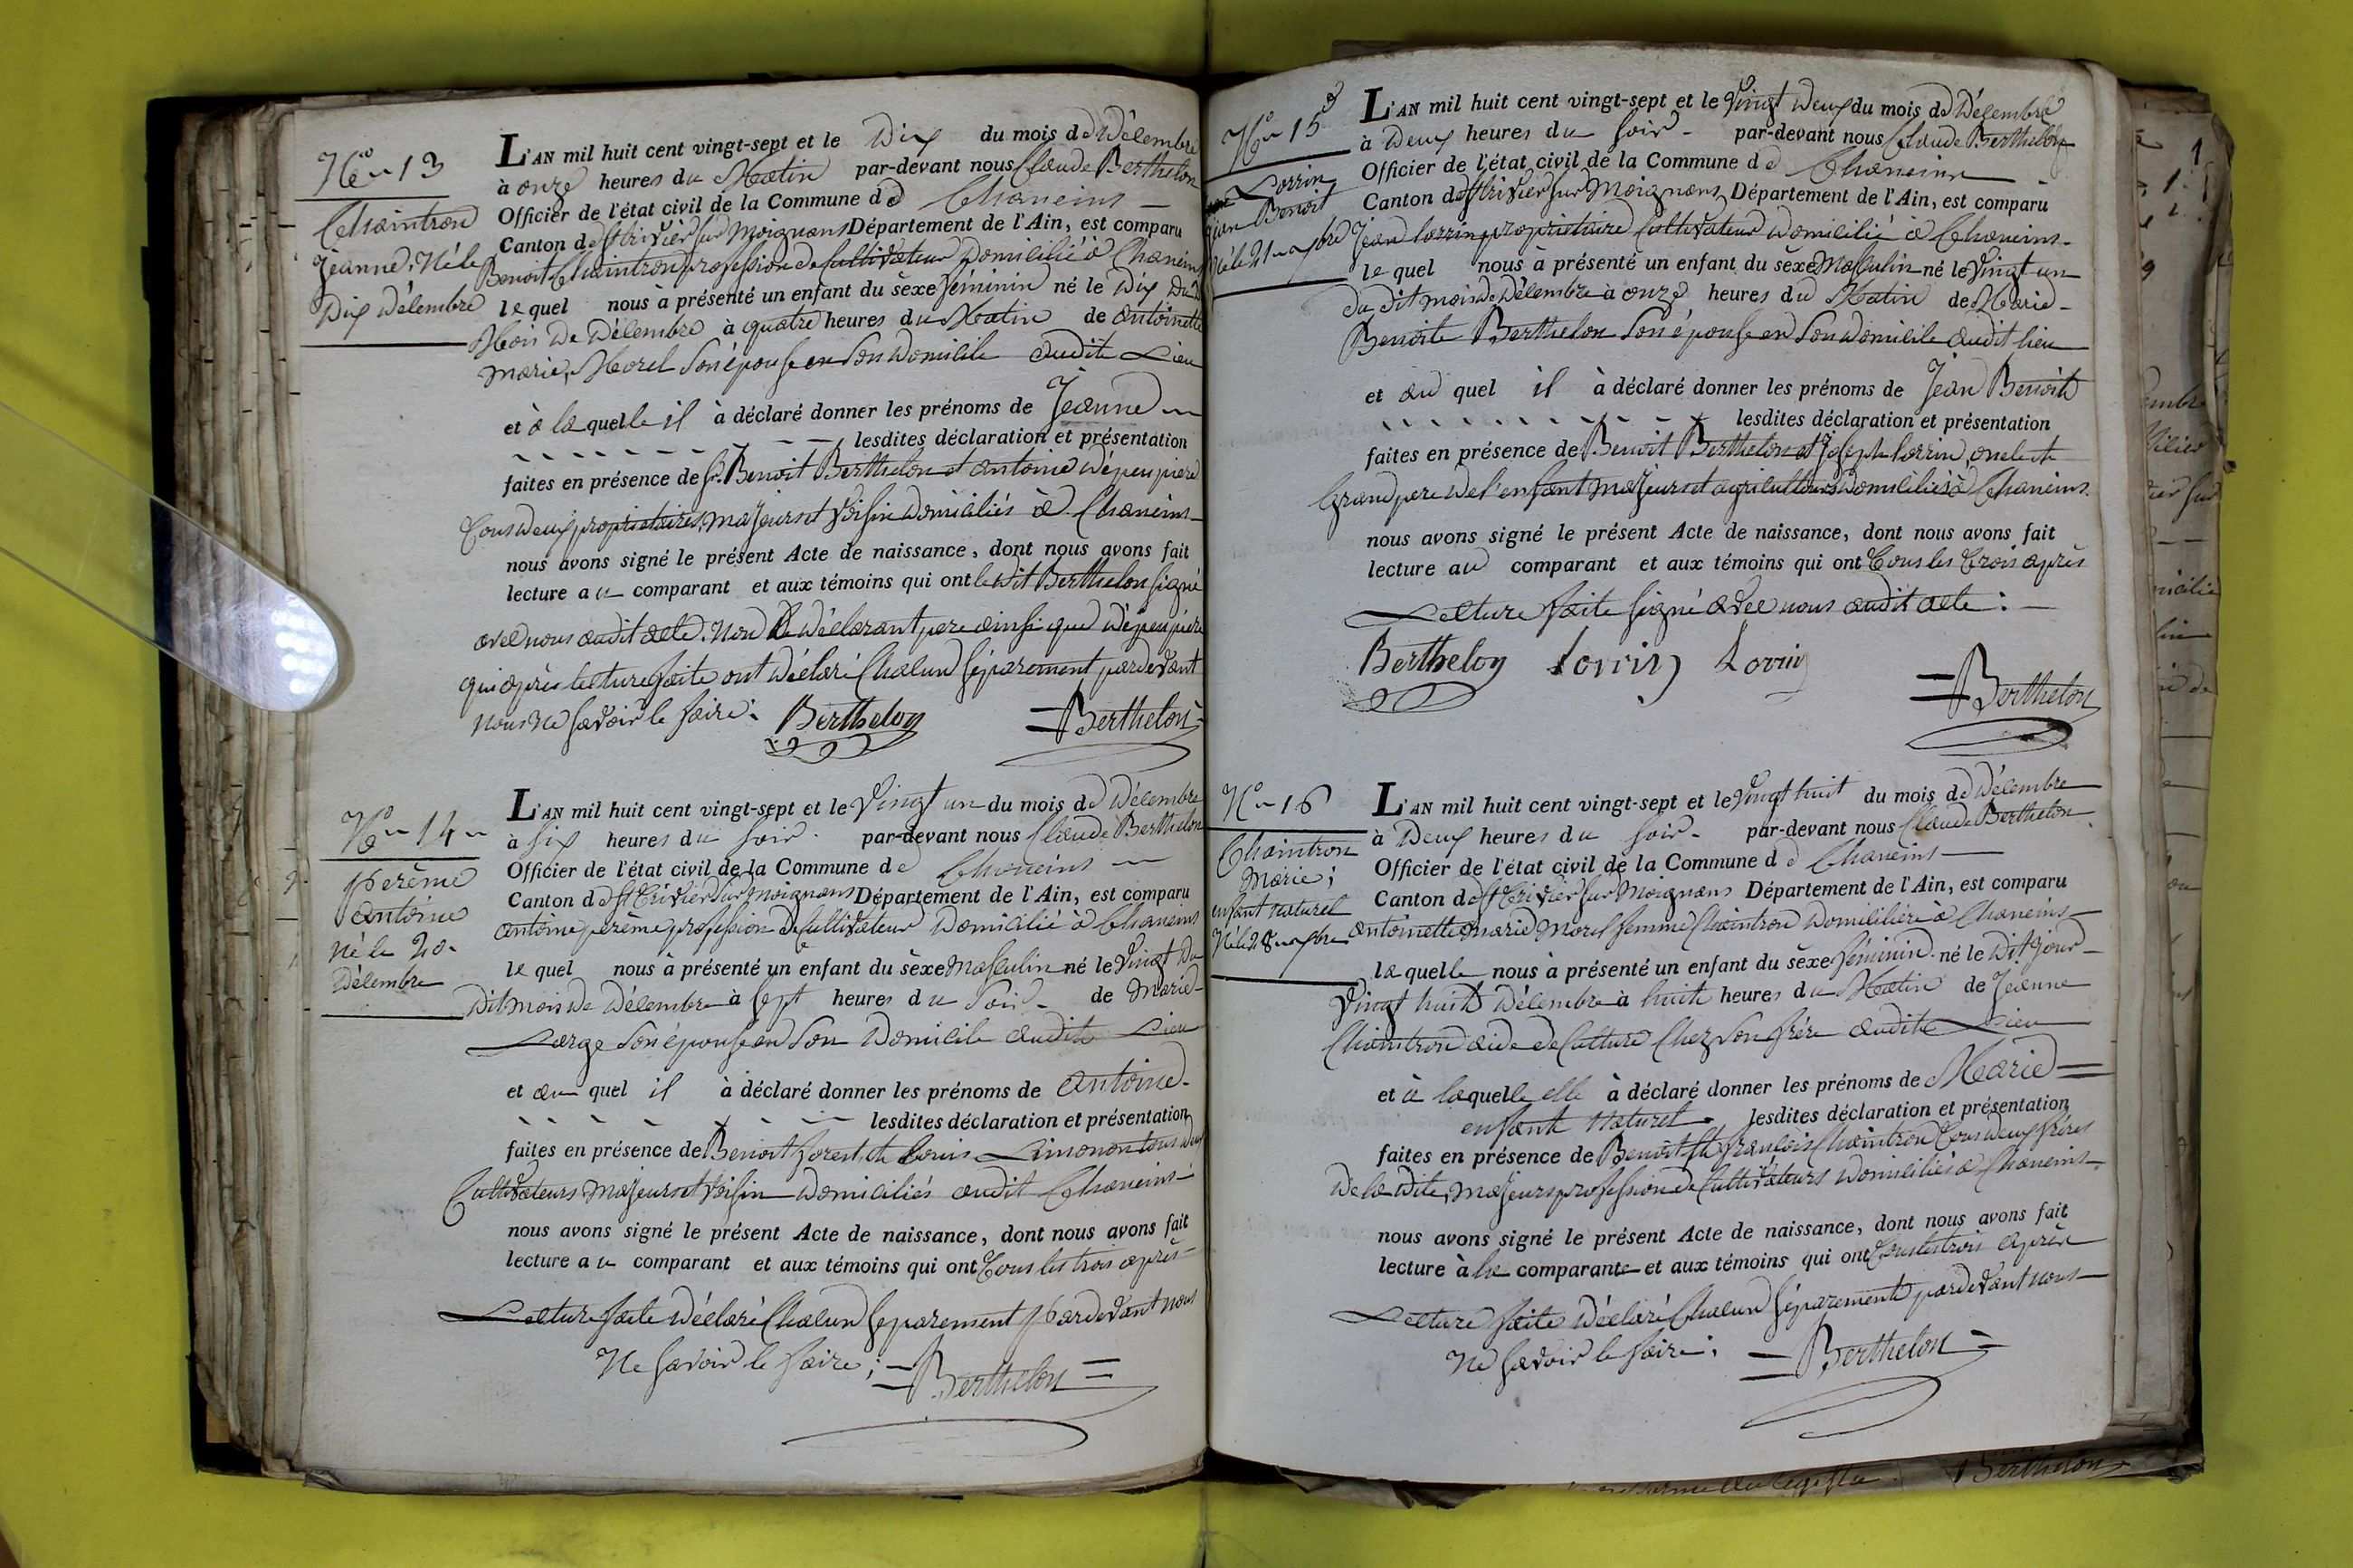 N° 13
Chaintron
Jeanne. Né le
Dix Décembre
L'AN mil huit cent vingt-sept et le Dix du mois de Décembre
à onze heures du Matin par-devant nous Claude Berthelon
Officier de l'état civil de la Commune de Chaneins
Canton de St trivier sur Moignans Département de l'Ain, est comparu
Benoit Chaintron profession de Cultivateur domicilié à Chaneins
lequel nous à présenté un enfant du sèxe féminin né le Dix du
Mois de Décembre à quatre heures du Matin de antoinette
marie Morel son épouse en son domicile audit Lieu
et à laquelle il à déclaré donner les prénoms de Jeanne
lesdites déclaration et présentation
faites en présence de sr. Benoit Berthelon et antoine dépeupiere
tous deux propriétaires, majeurs et voisin domiciliés à Chaneins
nous avons signé le présent Acte de naissance, dont nous avons fait
lecture au comparant et aux témoins qui ont le dit Berthelon signé
avec nous audit acte. Non le déclarant pere ainsi que dépeupière
qui après lecture faite ont déclaré chacun séparement pardevant
nous ne savoir le faire. Berthelon Berthelon
N° 14
perème
antoine
né le 20.
Décembre
L'AN mil huit cent vingt-sept et le Vingt un du mois de Décembre
à six heures du soir. par-devant nous Claude Berthelon
Officier de l'état civil de la Commune de Chaneins
Canton de St trivier sur moignans Département de l'Ain, est comparu
antoine perème profession de Cultivateur domicilié à Chaneins
lequel nous à présenté un enfant du sèxe Masculin né le Vingt du
dit mois de Décembre à sept heures du soir de Marie
Large son épouse en son domicile audit Lieu
et au quel il à déclaré donner les prénoms de antoine
lesdites déclaration et présentation
faites en présence de Benoit forest et Louis Limonon tous deux
Cultivateurs Majeurs et voisin domiciliés audit Chaneins
nous avons signé le présent Acte de naissance, dont nous avons fait
lecture au comparant et aux témoins qui ont tous les trois après
Lecture faite déclaré chacun séparement pardevant nous
Ne savoir le faire; Berthelon
N° 15
Lorrin
jean Benoit
Né le 21
L'AN mil huit cent vingt-sept et le Vingt deux du mois de Décembre
à Deux heures du soir par-devant nous Claude Berthelon
Officier de l'état civil de la Commune de Chaneins
Canton de St trivier sur Moignans Département de l'Ain, est comparu
Jean Lorrin propriétaire Cultivateur domicilié à Chaneins
lequel nous à présenté un enfant du sèxe Masculin né le Vingt un
du dit mois de Décembre à onze heures du Matin de Marie
Benoite Berthelon son épouse en son domicile audit lieu
et au quel il à déclaré donner les prénoms de Jean Benoit
lesdites déclaration et présentation
faites en présence de Benoit Berthelon et Joseph Lorrin, oncle et
Grand pere de l'enfant Majeurs et agriculteurs domiciliés à Chaneins.
nous avons signé le présent Acte de naissance, dont nous avons fait
lecture au comparant et aux témoins qui ont tous les trois après
Lecture faite signé avec nous audit acte:
Berthelon Lorrin Lorrin
Berthelon
N° 16
Chaintron
Marie;
enfant naturel
L'AN mil huit cent vingt-sept et le Vingt huit du mois de Décembre
à Deux heures du soir. par-devant nous Claude Berthelon
Officier de l'état civil de la Commune de Chaneins
Canton de St trivier sur Moignans Département de l'Ain, est comparu
antoinette marie Morel femme Chaintron domiciliére à Chaneins
laquelle nous à présenté un enfant du sèxe féminin né le Dit jour
Vingt huit Décembre à huit heures du Matin de Jeanne
Chaintron aide de Culture Chez son frére audit Lieu
et à laquelle elle à déclaré donner les prénoms de Marie
enfant Naturel. lesdites déclaration et présentation
faites en présence de Benoit et françois Chaintron tous deux frères
de la dite, majeurs profession de Cultivateurs domiciliés à Chaneins
nous avons signé le présent Acte de naissance, dont nous avons fait
lecture à la comparante et aux témoins qui ont tous les trois après
Lecture faite déclaré chacun séparement pardevant nous
Ne savoir le faire. Berthelon
Berthelon